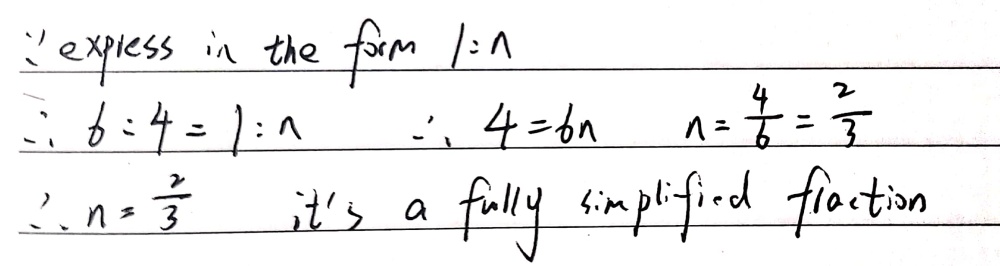 ∵ express in the form 1:n
∴ 6:4 = 1:n ∴ 4=6n n= 4/6 = 2/3
∴ n = 2/3 it's a fully simplified fraction